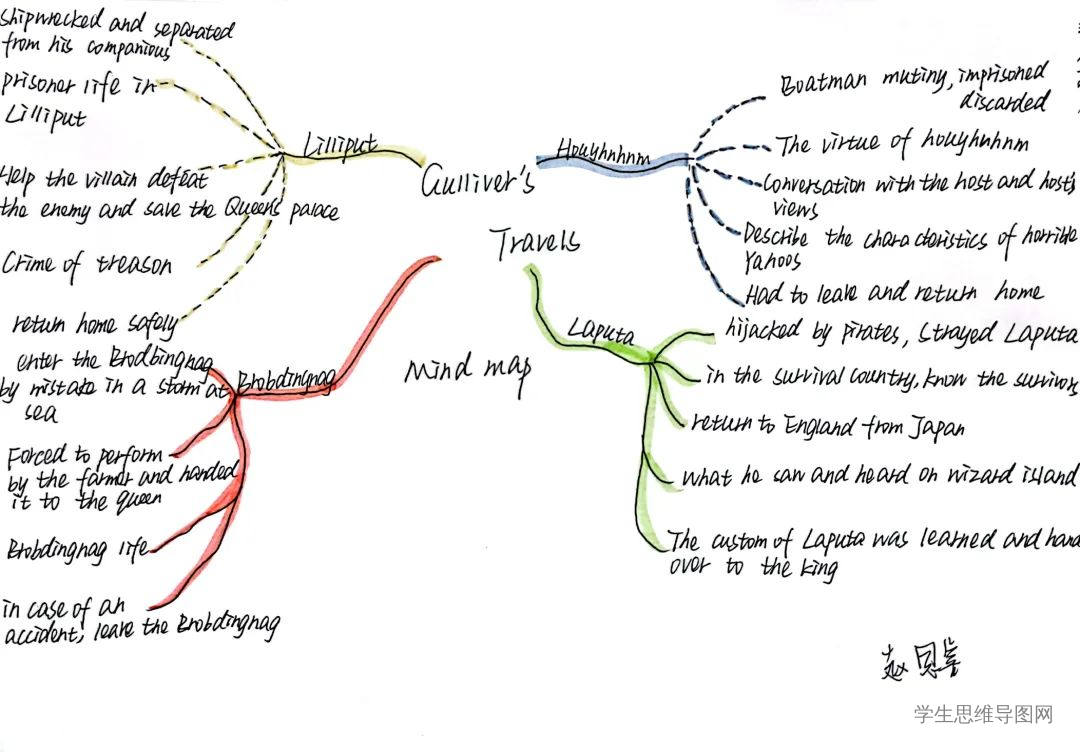 Shipwrecked and separated
from his companions
prisoner life in
Lilliput
Help the villain defeat
the enemy and save the Queen's palace
Crime of treason
return home safely
Lilliput
Gulliver's
Travels
Mind map
Houyhnhnm
Boatman mutiny, imprisoned
discarded
The virtue of houyhnhnm
Conversation with the host and host's
views
Describe the characteristics of horrible
Yahoos
Had to leave and return home
Brobdingnag
enter the Brodbingnag
by mistake in a storm at
sea
Forced to perform
by the farmer and handed
it to the queen
Brobdingnag life
in case of an
accident, leave the Brobdingnag
Laputa
hijacked by pirates, strayed Laputa
in the survival country, know the survivors
return to England from Japan
what he saw and heard on wizard island
The custom of Laputa was learned and hand
over to the king
学生思维导图网